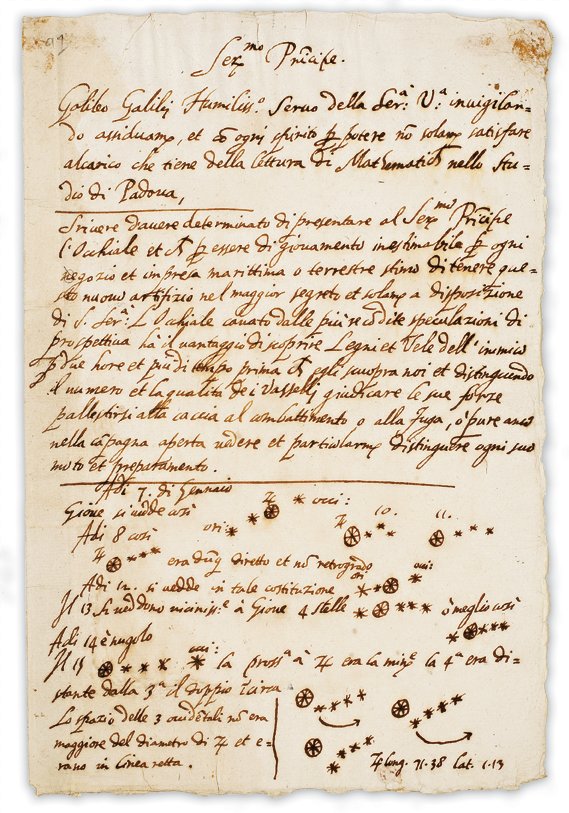 91
Ser.mo Prīcipe.
Galileo Galilei Humiliss.o Seruo della Ser.a V.a inuigilan-
do assiduam.e, et cō ogni spirito p potere nō solam.e satisfare
alcarico che tiene della lettura di Mathematic.e nello Stu-
dio di Padoua,
Scriuere d'auere determinato di presentare al Ser.mo Prīcipe
l'Occhiale et p essere di giouamento inestimabile p ogni
negozio et impresa marittima o terrestre stimo di tenere que-
sto nuouo artifizio nel maggior segreto et solam.e a disposizione
di S. Ser.a L'Occhiale cauato dalle più recōdite speculazioni di
prospettiua hà il uantaggio di scoprire Legni et Vele dell'inimico
p due hore et più di tempo prima egli scuopra noi et distinguendo
il numero et la qualità de i Vasselli giudicare le sue forze
pallestirsi alla caccia al combattimento o alla fuga, o pure anco
nella cāpagna aperta uedere et particolarm.e distinguere ogni suo
moto et preparamento.
Adi 7. di Gennaio
Gioue si uedde così occi:
Adi 8 così ori: 10. 11.
era dūq diretto et nō retrogrado
Adi 12. si uedde in tale costituzione ori occi:
Il 13 si ueddono uiciniss.e à Gioue 4 stelle ò meglio così
Adi 14 è nugolo
Il 15 occi: la pross.a à ♃ era la min.e la 4.a era di-
stante dalla 3.a il doppio īcirca
Lo spazio delle 3 occidētali nō era
maggiore del diametro di ♃ et e-
rano in linea retta.
♃ long. 71.38 lat. 1.13